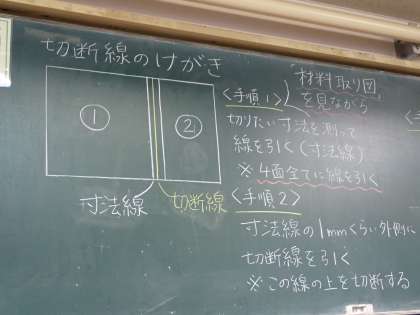 切断線のけがき
①
②
寸法線
切断線
<手順1>
「材料取り図」
を見ながら
切りたい寸法を測って
線を引く(寸法線)
※4面全てに線を引く
<手順2>
寸法線の1mmくらい外側に
切断線を引く
※この線の上を切断する